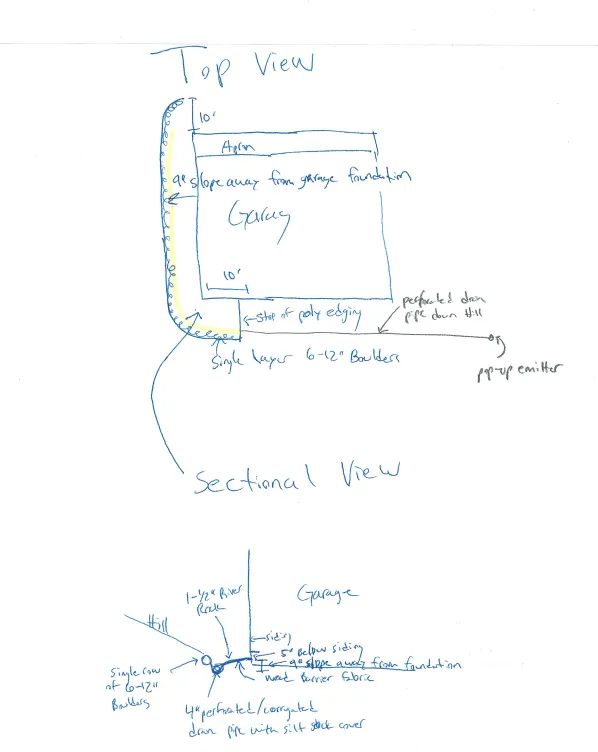 Top View
10'
Apron
9" slope away from garage foundation
Garag
10'
stop of poly edging
perforated drain
pipe down Hill
Single Layer 6-12" Boulders
pop-up emitter
Sectional View
1-1/2" River
Rock
Garage
Hill
siding
5" Below siding
9" slope away from foundation
weed Barrier Fabric
Single row
of 6-12"
Boulders
4" perforated/corrugated
drain pipe with silt sock cover